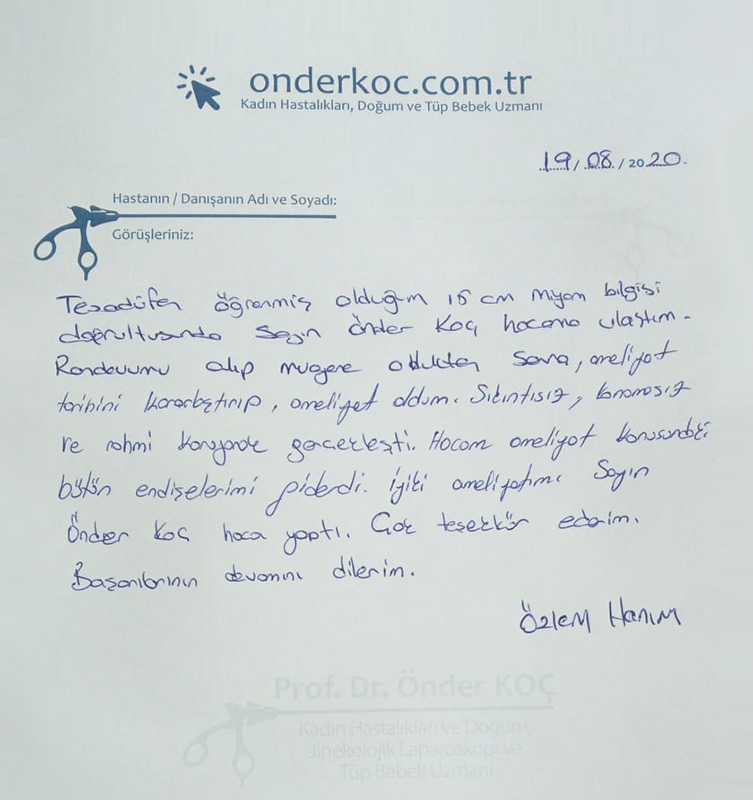 onderkoc.com.tr
Kadın Hastalıkları, Doğum ve Tüp Bebek Uzmanı
19/08/2020.
Hastanın / Danışanın Adı ve Soyadı:
Görüşleriniz:
Tesadüfen öğrenmiş olduğum 15 cm Miyom bilgisi
doğrultusunda Sayın Önder Koç hocama ulaştım.
Randevumu alıp muayene olduktan sonra, ameliyat
tarihini kararlaştırıp, ameliyat oldum. Sıkıntısız, kanamasız
ve rahmi koruyarak gerçerleşti. Hocam ameliyat konusundaki
bütün endişelerimi giderdi. İyiki ameliyatımı Sayın
Önder Koç hoca yaptı. Çok teşekkür ederim.
Başarılarının devamını dilerim.
Özlem Hanım
Prof. Dr. Önder KOÇ
Kadın Hastalıkları ve Doğum,
Jinekolojik Laparoskopi ve
Tüp Bebek Uzmanı